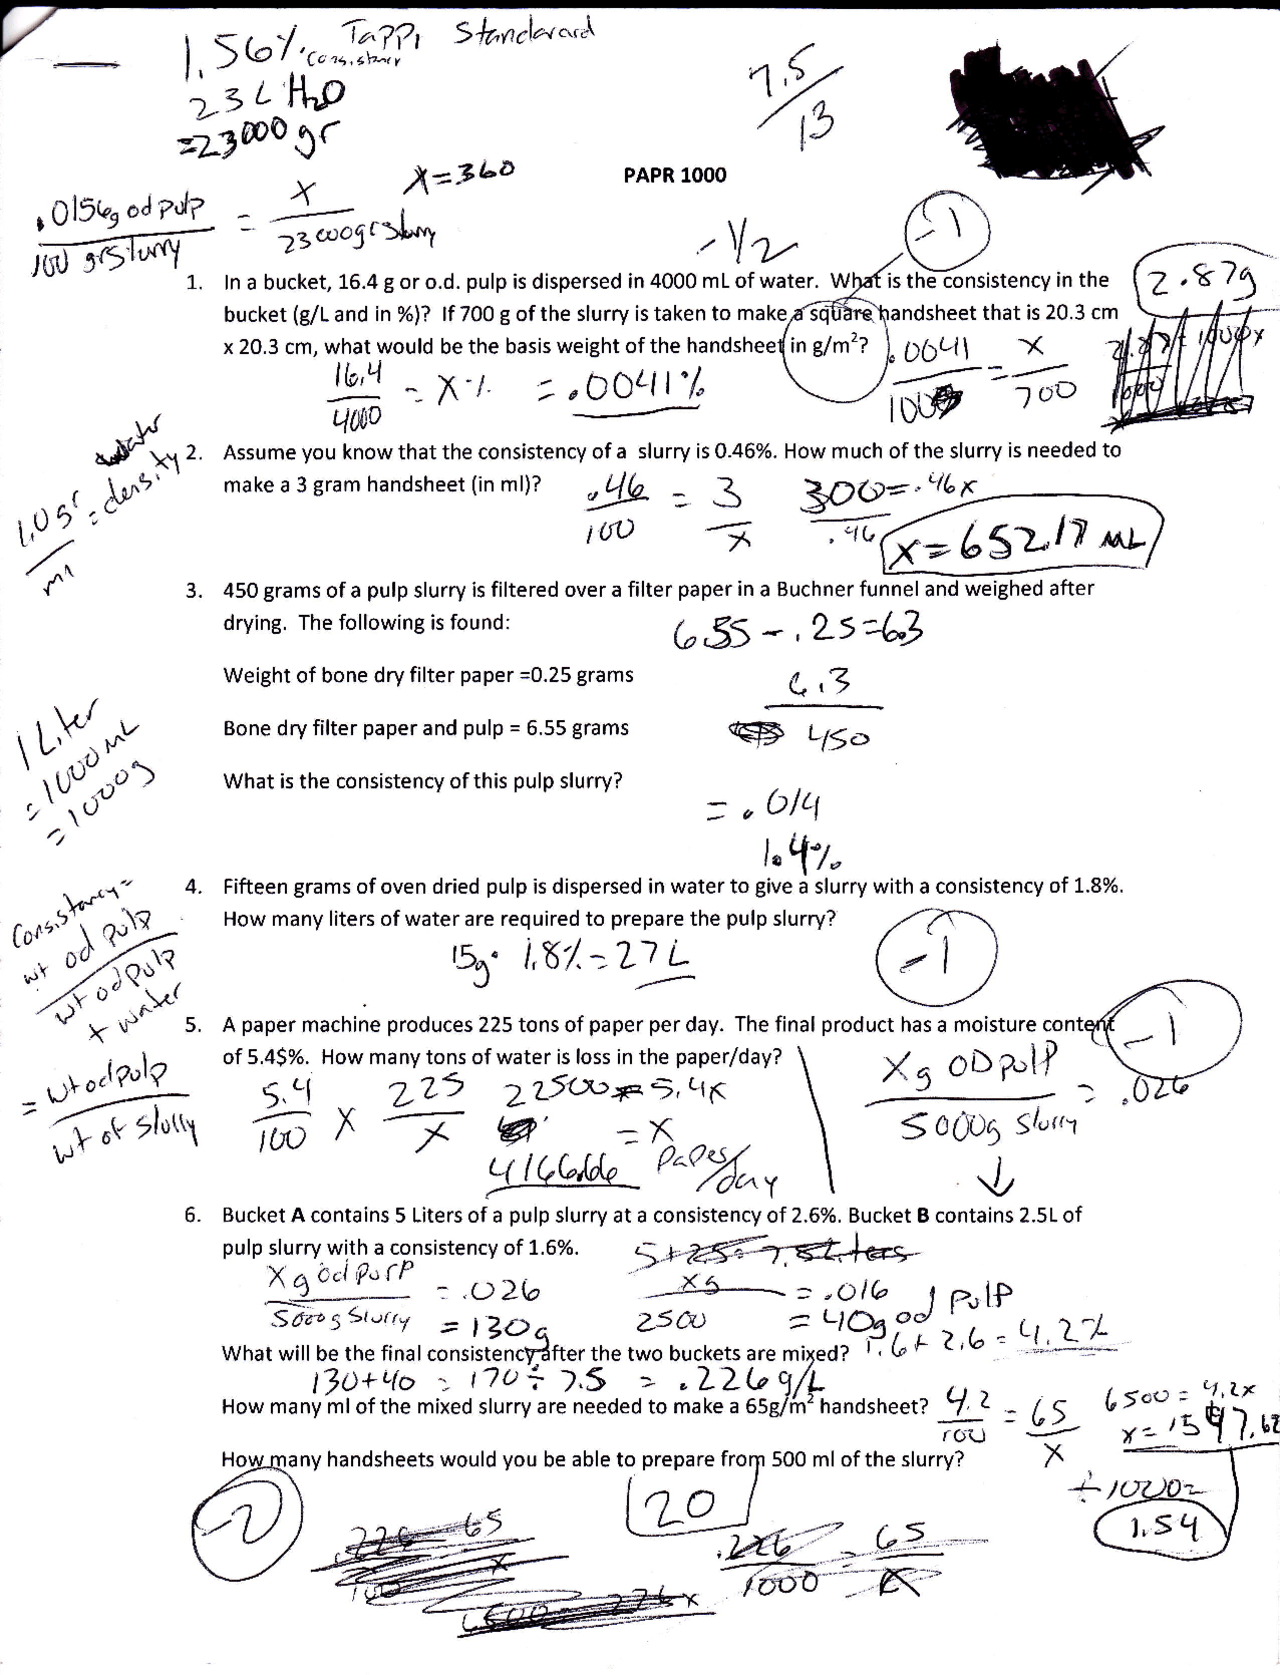 1.56% Tappi Standarard
consistency
23 L H2O
=23000 gr
7.5/13
PAPR 1000
.0156g od pulp / 100 gr slurry = x / 23000gr slurry
x=360
-1/2
-1
1. In a bucket, 16.4 g or o.d. pulp is dispersed in 4000 mL of water. What is the consistency in the
bucket (g/L and in %)? If 700 g of the slurry is taken to make a square handsheet that is 20.3 cm
x 20.3 cm, what would be the basis weight of the handsheet in g/m²?
2.87g
16.4/4000 = x% = .0041%
.0041/100 = x/700
water
1.0 gr/ml = density
2. Assume you know that the consistency of a slurry is 0.46%. How much of the slurry is needed to
make a 3 gram handsheet (in ml)?
.46/100 = 3/x
300=.46x
.46
x=652.17 mL
3. 450 grams of a pulp slurry is filtered over a filter paper in a Buchner funnel and weighed after
drying. The following is found:
6.55 - .25=6.3
Weight of bone dry filter paper =0.25 grams
6.3/450
Bone dry filter paper and pulp = 6.55 grams
What is the consistency of this pulp slurry?
= .014
1.4%
1 Liter
= 1000 mL
= 1000g
4. Fifteen grams of oven dried pulp is dispersed in water to give a slurry with a consistency of 1.8%.
How many liters of water are required to prepare the pulp slurry?
15g · 1.8% = 27 L
-1
Consistancy =
wt od pulp
wt od pulp
+ water
= wt od pulp
wt of slurry
5. A paper machine produces 225 tons of paper per day. The final product has a moisture content
of 5.4$%. How many tons of water is loss in the paper/day?
-1
5.4/100 x 225/x
22500 = 5.4x
= x
4166.66 paper/day
Xg OD pulp / 5000g slurry = .026
6. Bucket A contains 5 Liters of a pulp slurry at a consistency of 2.6%. Bucket B contains 2.5L of
pulp slurry with a consistency of 1.6%.
5+2.5= 7.5 Liters
Xg od pulp / 5000g slurry = .026
= 130g
xg / 2500 = .016
= 40g od pulp
What will be the final consistency after the two buckets are mixed?
1.6+2.6 = 4.2%
130+40 = 170 ÷ 7.5 = .226 g/L
How many ml of the mixed slurry are needed to make a 65g/m² handsheet?
4.2/100 = 65/x
6500 = 4.2x
x= 1547.62
How many handsheets would you be able to prepare from 500 ml of the slurry?
÷ 1000=
1.54
-2
20
.226/1000 = 65/x